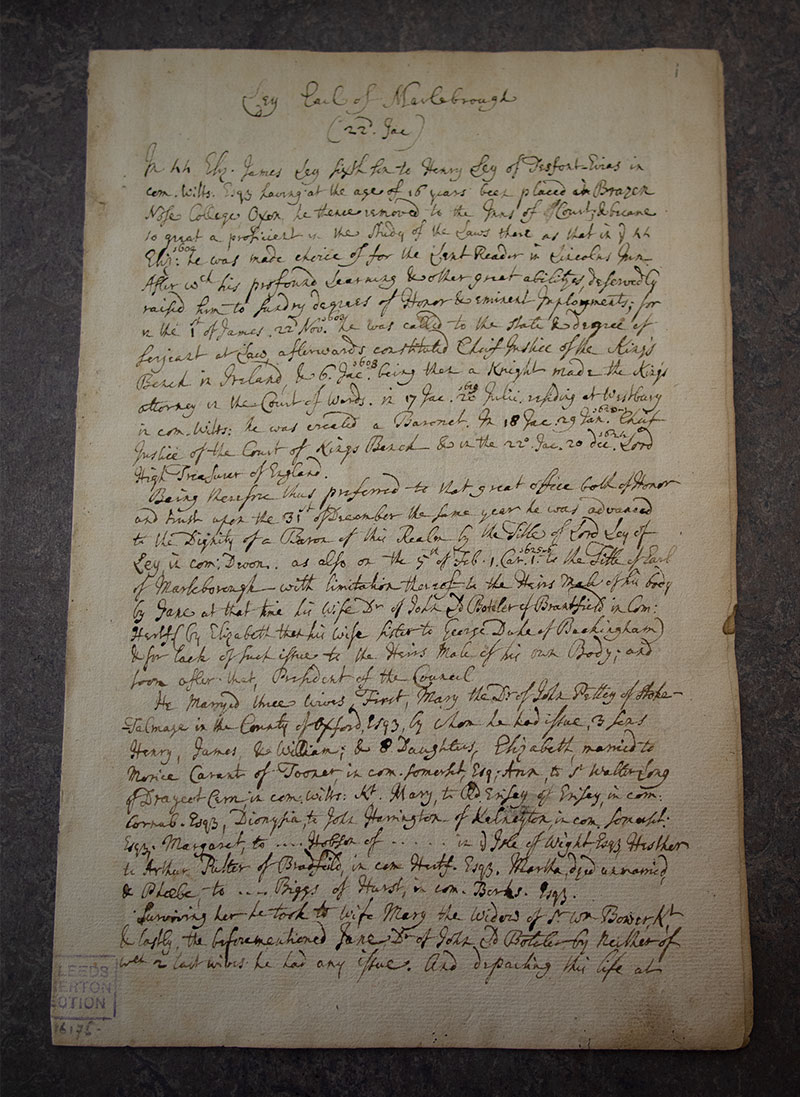 i
Ley Earl of Marlebrough
(22d. Jac)
In 44 Eliz. James Ley sixth son to Henry Ley of Tesfont-Evias in
com. Wilts. Esq3 having at the age of 16 years been placed in Brazen
Nose College Oxon, he thence removed to the Inns of Court; & became
so great a proficient in the Study of the Laws there as that in 44
Eliz: 1602 he was made choice of for the Lent Reader in Lincolns Inn
After wch his profound Learning & other great abilities, deservedly
raised him to sundry degrees of Honor & eminent Imployments; for
in the 1st of James. 22 Nov. 1603 he was called to the state & degree of
Serjeant at Law, afterwards constituted Cheif Justice of the Kings
Bench in Ireland, & 6. Jac. 1608 being then a Knight made the Kings
attorney in the Court of Wards. in 17 Jac. 20 Julii, 1619 residing at Westbury
in com. Wilts: he was created a Baronet. In 18 Jac. 29 Jan. Cheif
Justice of the Court of Kings Bench & in the 22o Jac. 20 Dec. 1624 Lord
High Treasurer of England.
Being therefore thus preferred to that great office both of Honor
and trust upon the 31st of December the same year he was advanced
to the Dignity of a Baron of this Realm by the Title of Lord Ley of
Ley in com. Devon.. as also on the 5th of Feb. 1. Car. 1. to the Title of Earl
of Marleborough with limitation thereof to the Heirs Male of his body
by Jane at that time his wife Dr of John Ld Boteler of Brantfield in Com:
Hertf. (by Elizabeth then his Wife sister to George Duke of Buckingham)
& for lack of such issue to the Heirs Male of his own Body; and
soon after that, President of the Council
He Marryed three wives, First, Mary the Dr of John Pettey of Stoke-
-Talmage in the County of Oxford, Esq3, by whom he had issue, 3 Sons
Henry, James, & William; & 8 Daughters, Elizabeth, married to
Morice Carant of Toomer, in com. Somerset, Esq; Ann, to Sr Walter Long
of Draycot Cern, in com. Wilts: Kt. Mary, to Erisey of Erisey, in com:
Cornub. Esq3, Dionysia, to John Harrington of Kelneyton in com. Somerset:
Esq3. Margaret, to .... Hobson of ...... in Isle of Wight Esq3 Hesther
to Arthur Pulter of Bradfeild, in com Hertf. Esq3. Martha, dyed unmarried,
& Phoebe, to .... Biggs of Hurst, in com. Berks. Esq3.
Surviving her he took to Wife Mary the Widow of Sr Wm Bower, Kt
& lastly, the beforementioned Jane Dr of John Ld Boteler by Neither of
wch 2 last wives he had any issue. And departing this life at
LEEDS
ERTON
OTION